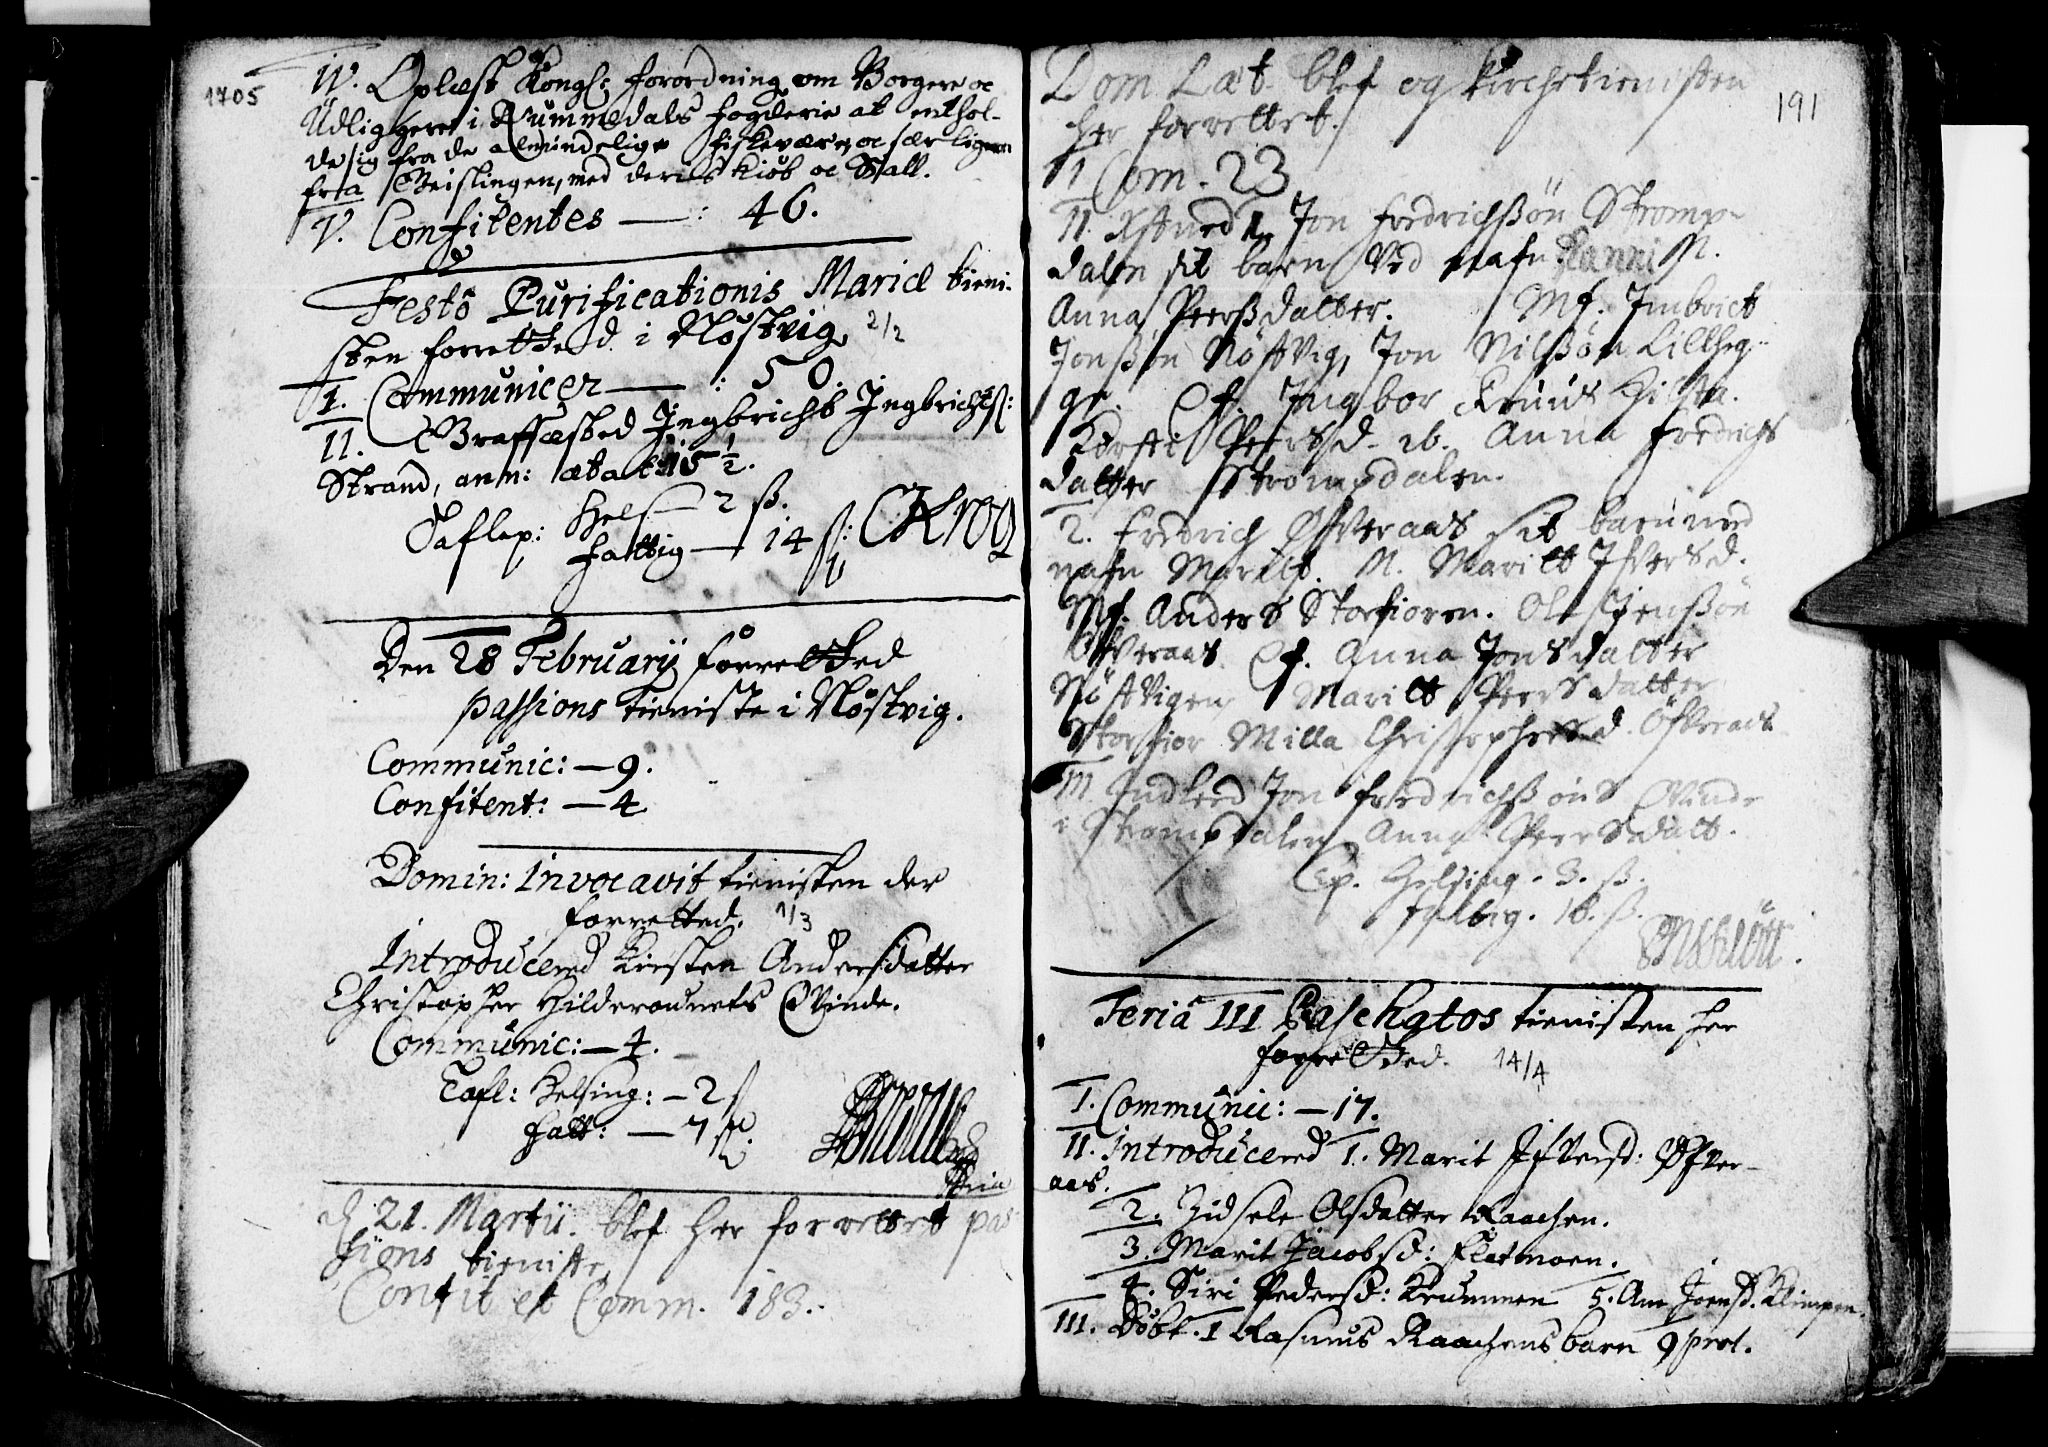 1705
IV. Oplæst Kongl: forordning om Borgere oc
Udliggere i Rummedals fogderie at enthol-
de sig fra de almindelige fiskevær, oc særligen
fra Geislingen, med deris Kiøb oc Sall.
V. Confitentes —: 46.
Festo Purificationis Mariæ tieni-
sten forretted i Nøstvig 2/2
I. Communicer — : 50
II. Graffæsted Ingbricht Ingbrichts:
Strand, ann: ætat: 15 ½.
Taflep: Hels — 2 ß.
fattig — 14 ß: CKrog
Den 28 Februarij forretted
passions tieniste i Nøstvig.
Communic: — 9.
Confitent: — 4
Domin: Invocavit tienisten her
forretted. 1/3
Introducered Kirsten Andersdatter
Christopher Hilderaunets Qvinde.
Communic: — 4.
Tafl: Helsing: — 2 ß
fatt: — 7 ß.
d 21. Martii. blef her forrettet pas
sions tieniste
Confit et Comm. 183.
191
Dom Læt. blef og kirchetienisten
her forrettet.
I Com. 23
II. 1. Jon Fredrichßøn Stromp-
dalen sit barn Ved nafn M.
Anna Peersdatter. Mf. Imbrict
Jonßøn Nöstvig, Jon Nilßøn Lillheg-
ge. Qf. Ingbor
Kirsti Peersd. ib. Anna Fredrichs
datter Strompdalen.
2. Fredrich Øfveraas sit barn med
nafn Maritt. M. Maritt Ifversd.
Mf. Anders Storfioren. Ole Jenßøn
Øfveraas. Qf. Anna Jonsdatter
Nöstvigen Maritt Peersdatter
Storfior Milla Christophersd. Öfveraas
III Indleed Jon Fredrichßøns Qvinde
i Strompdalen Anna Peersdatt.
Helsing. 3. ß.
Feria III Paschatos tienisten her
forretted. 14/4
I. Communic: — 17.
II. Introducered 1. Marit Ifversd: Øfver-
aas.
2. Zidsele Olsdatter Raachen.
3. Marit Jacobsd: Fletmoen.
4. Siri Pedersd: Krummen 5. Ane Joensd. Klimpen.
III. Døbt. 1 Rasmus Raachens barn